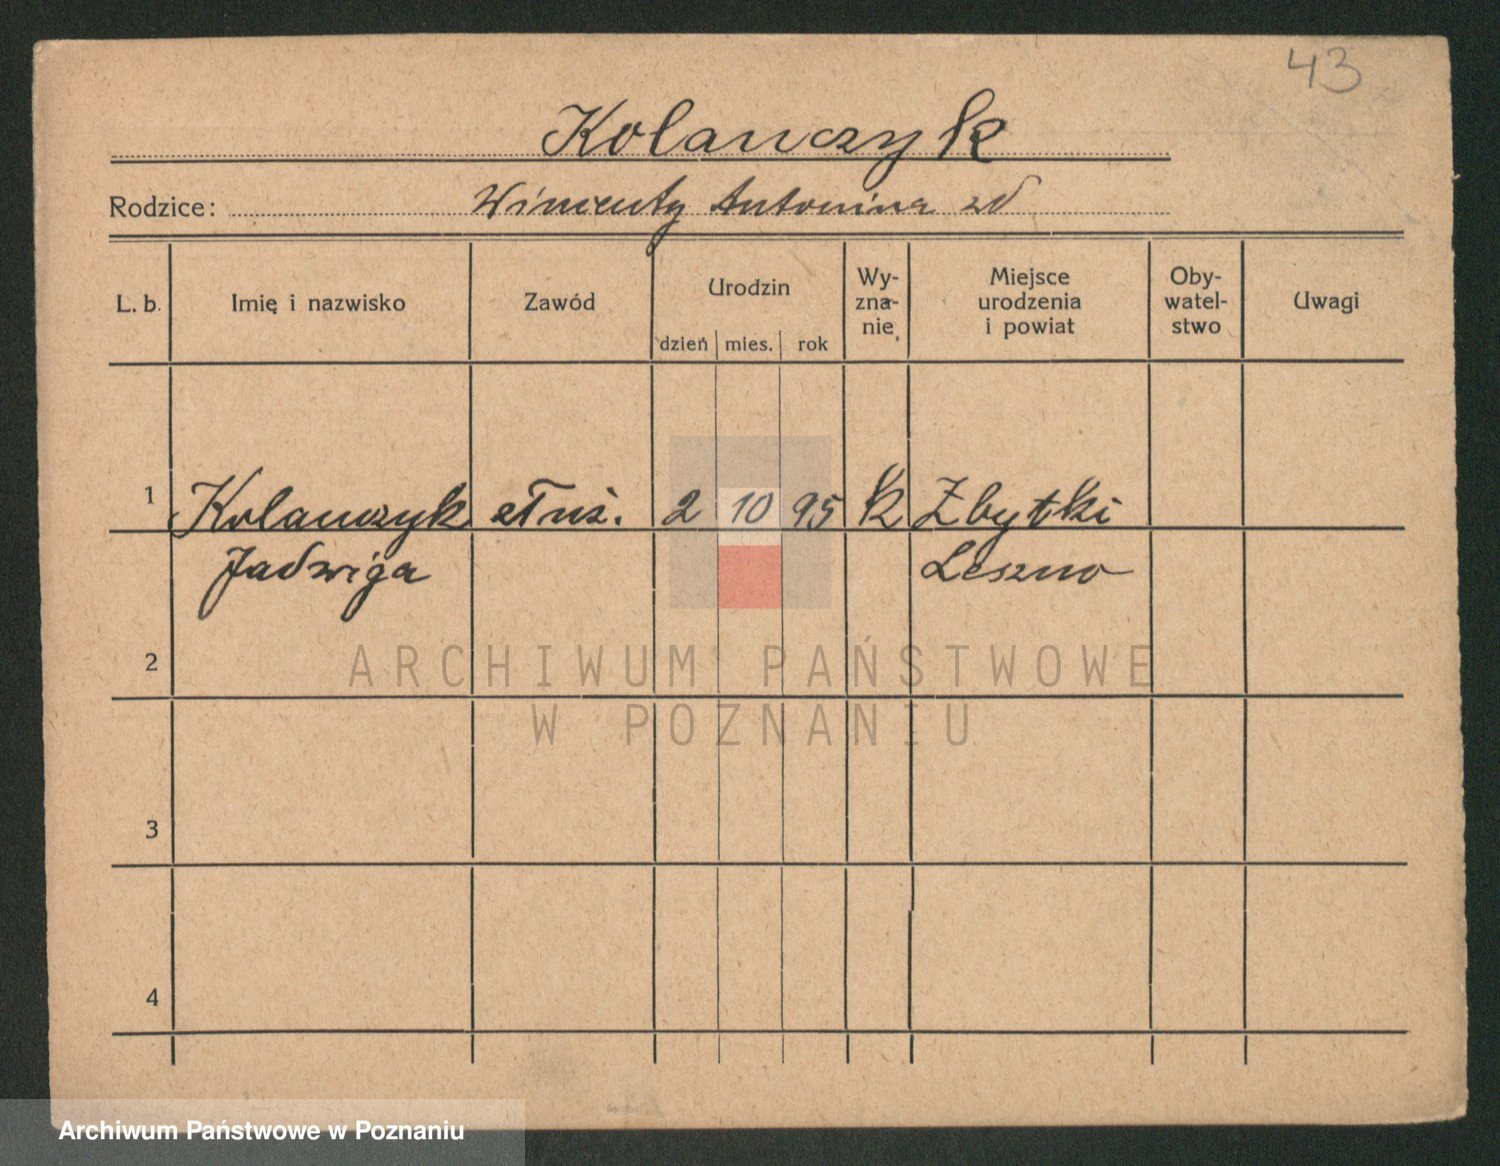 43
Kolanczyk
Rodzice: Wincenty Antonina zd
L. b. Imię i nazwisko Zawód Urodzin dzień mies. rok Wy-zna-nie. Miejsce urodzenia i powiat Oby-watel-stwo Uwagi
1 Kolanczyk służ. 2 10 95 k Zbytki
Jadwiga Leszno
2
ARCHIWUM PAŃSTWOWE
W POZNANIU
3
4
Archiwum Państwowe w Poznaniu